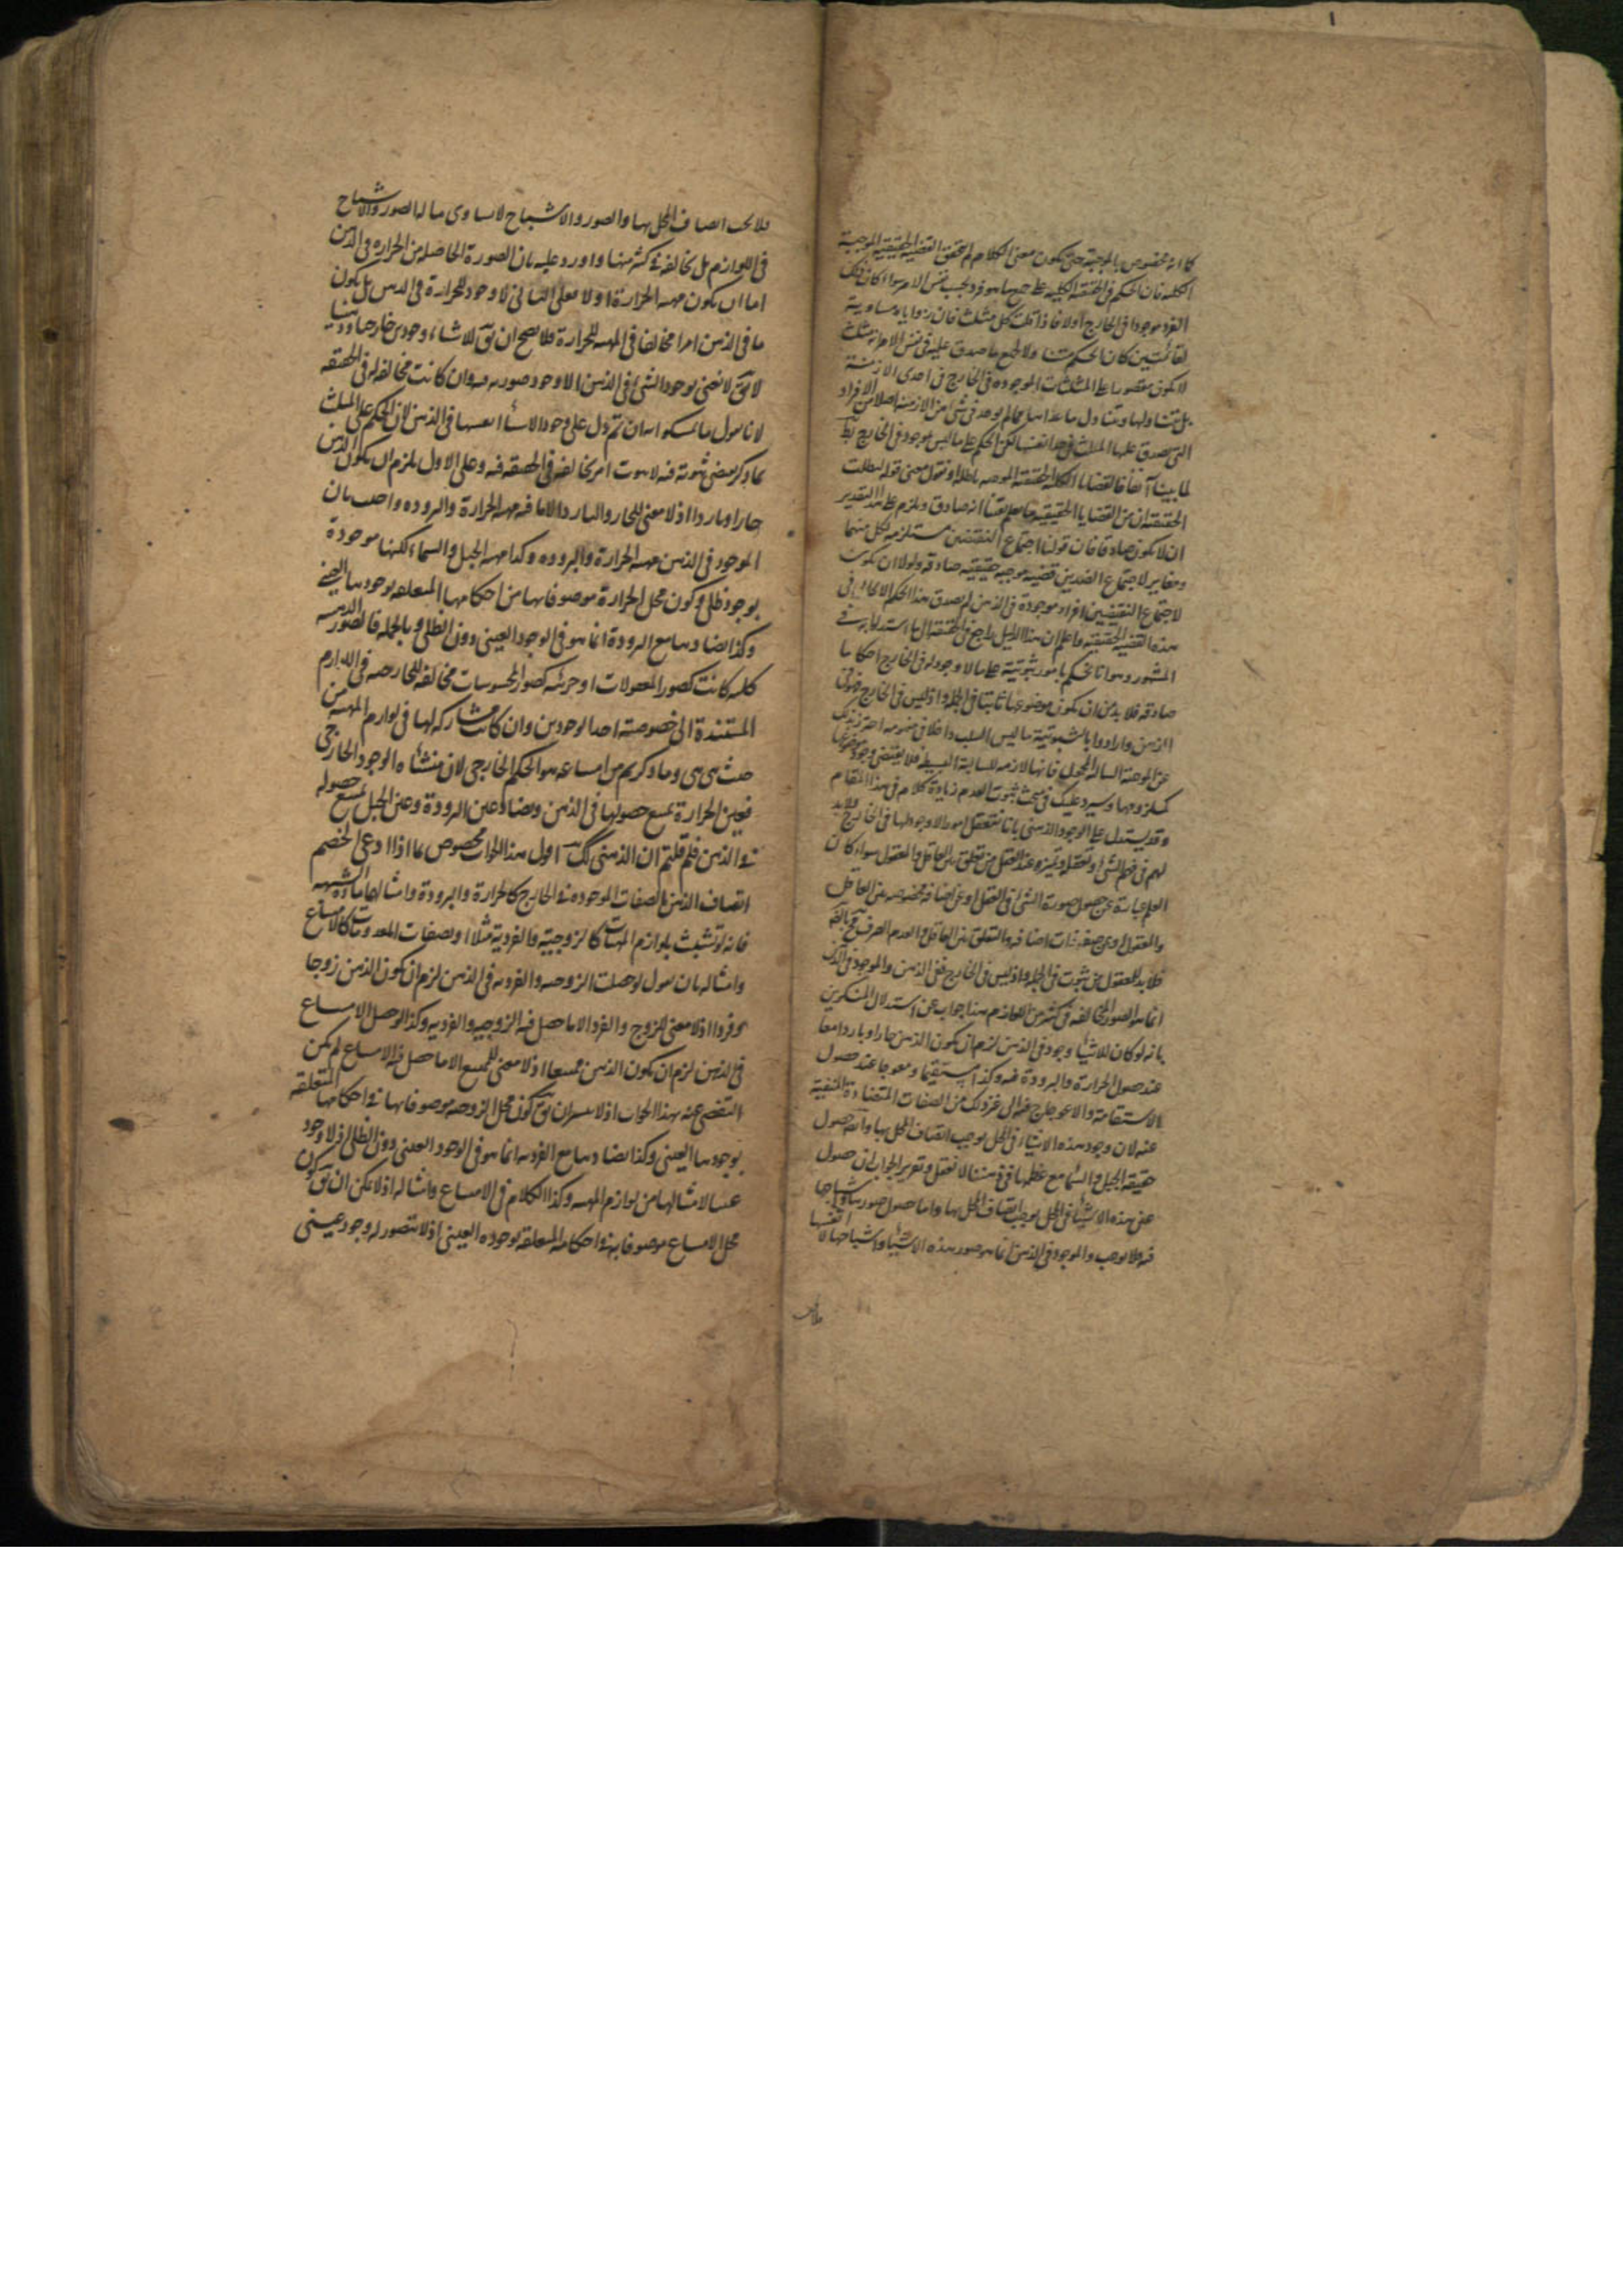 كما انه مخصوص بالموجبة حتى يكون معنى الكلام لم تتحقق القضية الحقيقية الموجبة
الكلية فان الحكم فى الحقيقة الكلية على جميع ما هو فرد بحسب نفس الامر سواء كان ذلك
الفرد موجودا فى الخارج اولا فاذا قلت كل مثلث فان زواياه مساوية
لقائمتين كان الحكم متناولا لجميع ما صدق عليه فى نفس الامر انه مثلث
لا يكون مقصورا على المثلثات الموجوده فى الخارج فى احدى الازمنة
بل يتناولها ويتناول ما عداها مما لم يوجد فى شئ من الازمنة اصلا من الافراد
التى يصدق عليها المثلث فى حد انفسها لكن الحكم على ما ليس موجود فى الخارج بط
لما بينا آنفا فالقضايا الكلية الحقيقية الموجبه باطلة او نقول معنى قوله لبطلت
الحقيقية ان من القضايا الحقيقية ما يعلم يقينا انه صادق ويلزم على هذا التقدير
ان لا يكون صادقا فان قولنا اجتماع النقيضين مستلزم لكل منهما
ومغاير لاجتماع الضدين قضيه موجبه حقيقيه صادقه ولولا ان يكون
لاجتماع النقيضين افراد موجودة فى الذهن لم يصدق هذا الحكم الايجابى فى
هذه القضيه الحقيقيه واعلم ان هذا الدليل راجع فى الحقيقة الى ما استدل به فى
المشهور وهو انا نحكم بامور ثبوتية على ما لا وجود له فى الخارج احكاما
صادقه فلا بد من ان يكون موضوعها ثابتا فى الجملة واذ ليس فى الخارج فهو فى
الذهن وارادوا بالثبوتية ما ليس السلب داخلا فى مفهومه احترز بذلك
عن الموجبة السالبه المحمول فانها لازمه للسالبة البسيطة فلا يقتضى وجود موضوعها
كملزومها وسيرد عليك فى مبحث ثبوت العدم زيادة كلام فى هذا المقام
وقد يستدل على الوجود الذهنى بانا نتعقل امورا لا وجود لها فى الخارج فلا بد
لهم فى فهم الشئ وتعقله وتميزه عند العقل من تعلق بين العاقل والمعقول سواء كان
العلم عبارة عن حصول صورة الشئ فى العقل او عن اضافة مخصوصه بين العاقل
والمعقول او عن صفة ذات اضافه والتعلق بين العاقل والعدم الصرف مح بالضرورة
فلا بد للمعقول من ثبوت فى الجملة واذ ليس فى الخارج ففى الذهن والموجود فى الذهن
انما هو الصور المخالفه فى كثير من اللوازم هذا جواب عن استدلال المنكرين
بانه لو كان للاشياء وجود فى الذهن لزم ان يكون الذهن حارا وباردا معا
عند حصول الحرارة والبرودة فيه وكذا مستقيما ومعوجا عند حصول
الاستقامة والاعوجاج فيه الى غير ذلك من الصفات المتضادة المنفية
عنه لان وجود هذه الاشياء فى المحل يوجب اتصاف المحل بها وايضا حصول
حقيقة الجبل والسماء مع عظمها فى ذهننا لا نعقل وتقرير الجواب ان حصول
عين هذه الاشياء فى المحل يوجب اتصاف المحل بها واما حصول صورها واشباحها
فيه فلا يوجب والموجود فى الذهن انما هو صور هذه الاشياء واشباحها لا انفسها
فلا يجب
فلا يجب اتصاف المحل بها والصور والاشباح لا يساوى ما له الصور والاشباح
فى اللوازم بل يخالفه فى كثير منها واورد عليه بان الصورة الحاصلة من الحرارة فى الذهن
اما ان يكون مهية الحرارة او لا فعلى الثانى لا وجود للحرارة فى الذهن بل يكون
ما فى الذهن امرا مخالفا فى المهية للحرارة فلا يصح ان يق للاشياء وجودين خارجيا وذهنيا
لا يق لا نعنى بوجود الشئ فى الذهن الا وجود صورته فيه وان كانت مخالفة له فى الحقيقه
لانا نقول ما تمسكوا به ان تم دل على وجود الاشياء انفسها فى الذهن لان الحكم على المثلث
كما ذكر يقتضى ثبوته فيه لا ثبوت امر يخالفه فى الحقيقه فيه وعلى الاول يلزم ان يكون الذهن
حارا وباردا اذ لا معنى للحار والبارد الا ما فيه مهية الحرارة والبروده واجيب بان
الموجود فى الذهن مهية الحرارة والبروده وكذا مهية الجبل والسماء لكنها موجودة
بوجود ظلى وكون محل الحرارة موصوفا بها من احكامها المتعلقه بوجودها العينى
وكذا تضادها مع البرودة انما هو فى الوجود العينى دون الظلى وبالجملة فالصور الذهنيه
كليه كانت كصور المعقولات او جزئية كصور المحسوسات مخالفة للخارجيه فى اللوازم
المستندة الى خصوصية احد الوجودين وان كانت مشاركة لها فى لوازم المهية من
حيث هى هى وما ذكرتم من امتناعه هو الحكم الخارجى لان منشأه الوجود الخارجى
فعين الحرارة يمتنع حصولها فى الذهن ويضاد عين البرودة وعين الجبل يمتنع حصوله
فى الذهن فلم قلتم ان الذهنى كك اقول هذا الجواب مخصوص بما اذا ادعى الخصم
اتصاف الذهن بالصفات الموجوده فى الخارج كالحرارة والبرودة وامثالها ماده الشبهه
فانه لو تشبث بلوازم المهيات كالزوجية والفردية مثلا او بصفات المعدومات كالامتناع
وامثاله بان يقول لو حصلت الزوجيه والفرديه فى الذهن لزم ان يكون الذهن زوجا
وفردا اذ لا معنى للزوج والفرد الا ما حصل فيه الزوجيه والفرديه وكذا لو حصل الامتناع
فى الذهن لزم ان يكون الذهن ممتنعا اذ لا معنى للممتنع الا ما حصل فيه الامتناع لم يمكن
التفصى عنه بهذا الجواب اذ لا يتيسر ان يق كون محل الزوجيه موصوفا بها من احكامها المتعلقه
بوجودها العينى وكذا تضادها مع الفرديه انما هو فى الوجود العينى دون الظلى اذ لا وجود
عينيا لامثالها من لوازم المهيه وكذا الكلام فى الامتناع وامثاله اذ لا يمكن ان يق كون
محل الامتناع موصوفا به من احكامه المتعلقه بوجوده العينى اذ لا يتصور له وجود عينى